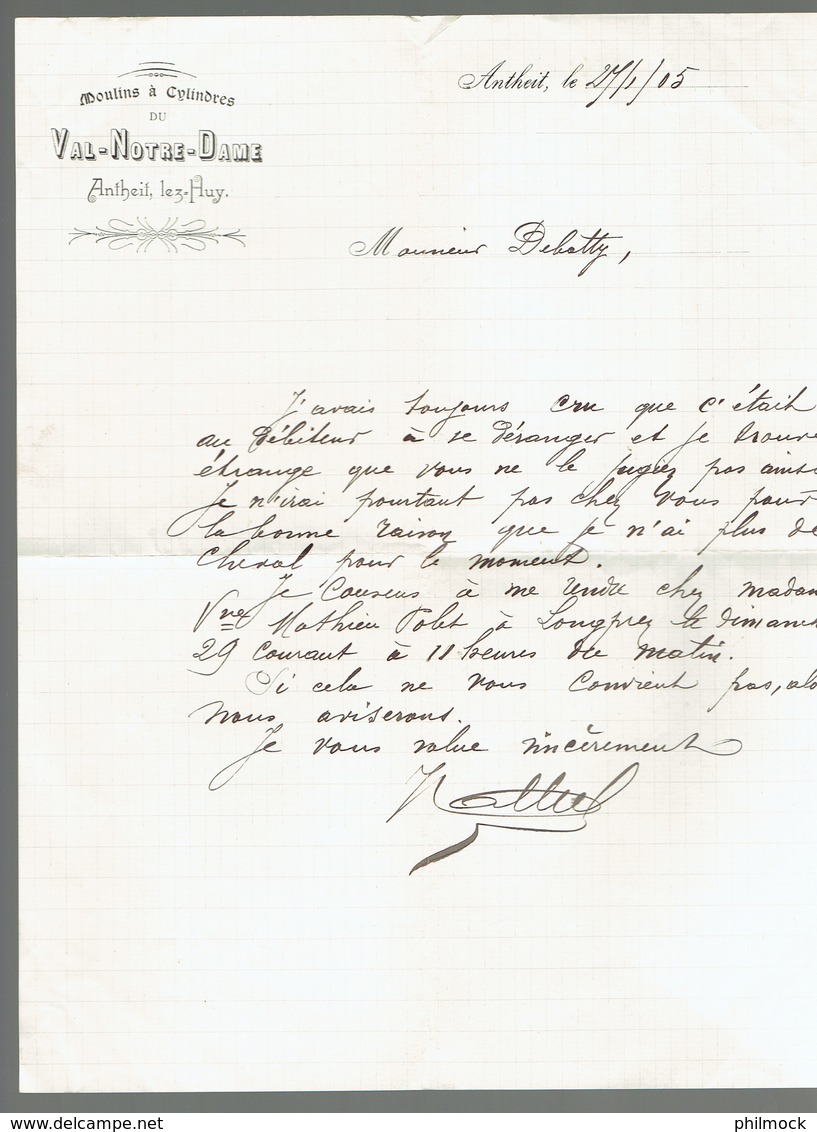 Moulins à Cylindres
DU
VAL-NOTRE-DAME
Antheit, lez-Huy.
Antheit, le 27/1/05
Monsieur Debatty,
J'avais toujours cru que c'était
au débiteur à se déranger et je trouve
étrange que vous ne le jugiez pas ainsi
Je n'irai pourtant pas chez vous pour
la bonne raison que je n'ai plus de
cheval pour le moment.
Je consens à me rendre chez madam
Vve Mathieu Polet à Longprez le dimanc
29 courant à 11 heures du matin.
Si cela ne vous convient pas, alo
nous aviserons.
Je vous salue sincèrement
www.delcampe.net
philmock